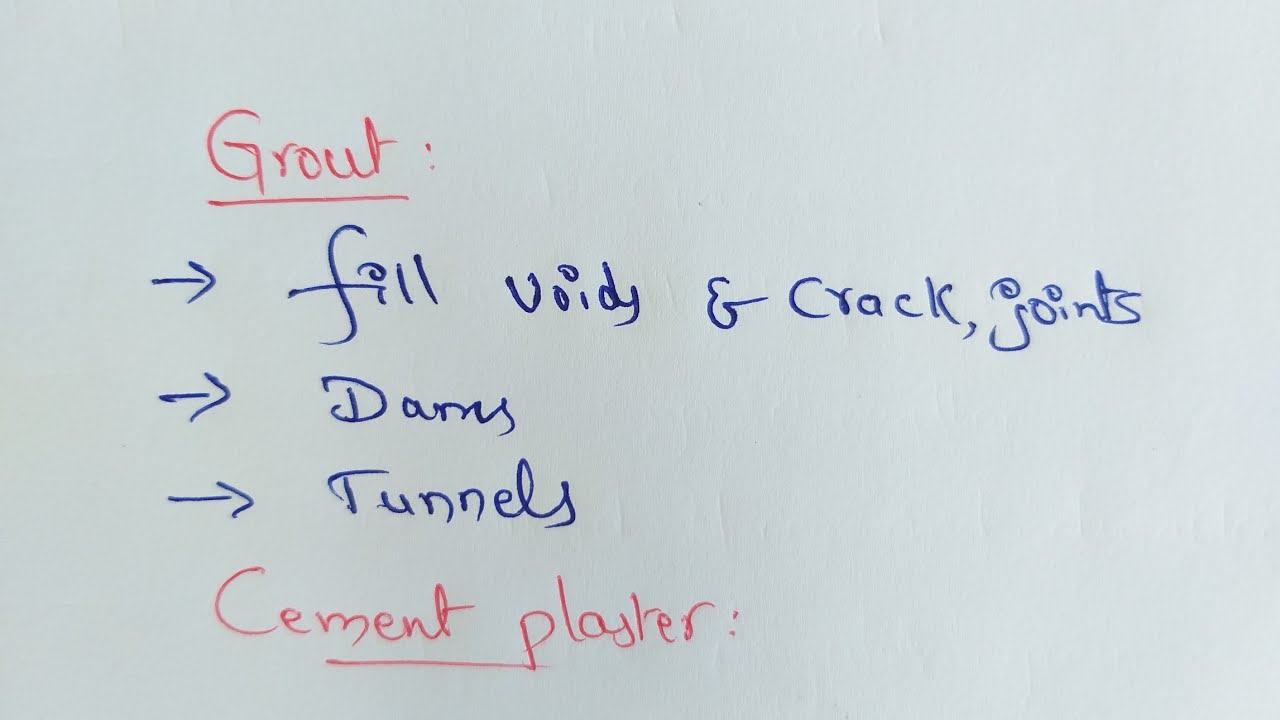 Grout:
→ fill voids & Crack, joints
→ Dams
→ Tunnels
Cement plaster: